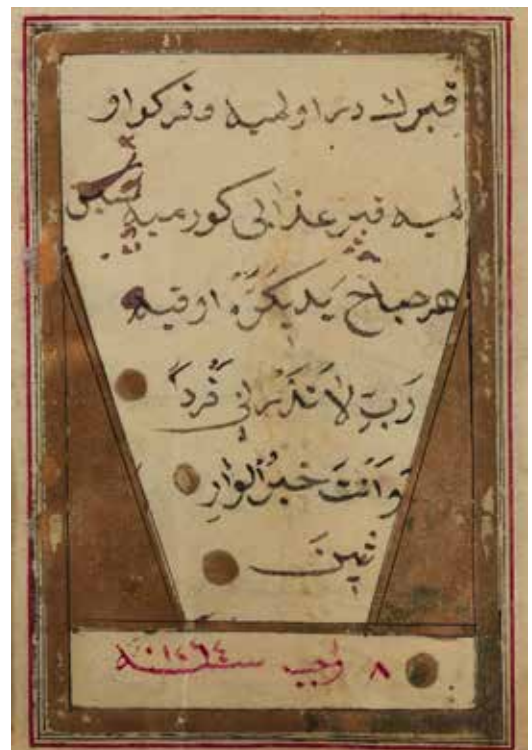 قبرك در اولميه وقركو او
لميه قبر عذابى كورميه
هر صباح يدي كَرَّه اوقيه
رَبِّ لَا تَذَرْنِي فَرْدًا
وَأَنْتَ خَيْرُ الْوَارِ
ثِينَ
٨ سنه ١٢٦٤